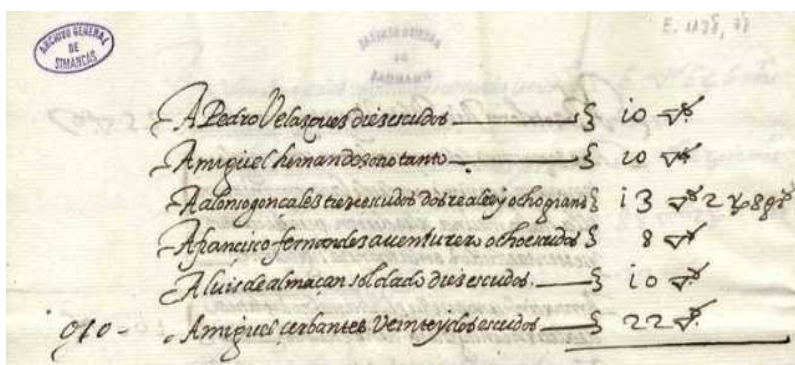 ARCHIVO GENERAL DE SIMANCAS
E. 1138,
A Pedro Velazques dies escudos 10
A miguel hernandes otro tanto 10
A alonso gonçales trece escudos dos reales y ocho granos 13 2 8
A francisco fernandes auenturero ocho escudos 8
A luis de almaçan soldado dies escudos 10
A miguel cerbantes Veinte y dos escudos 22